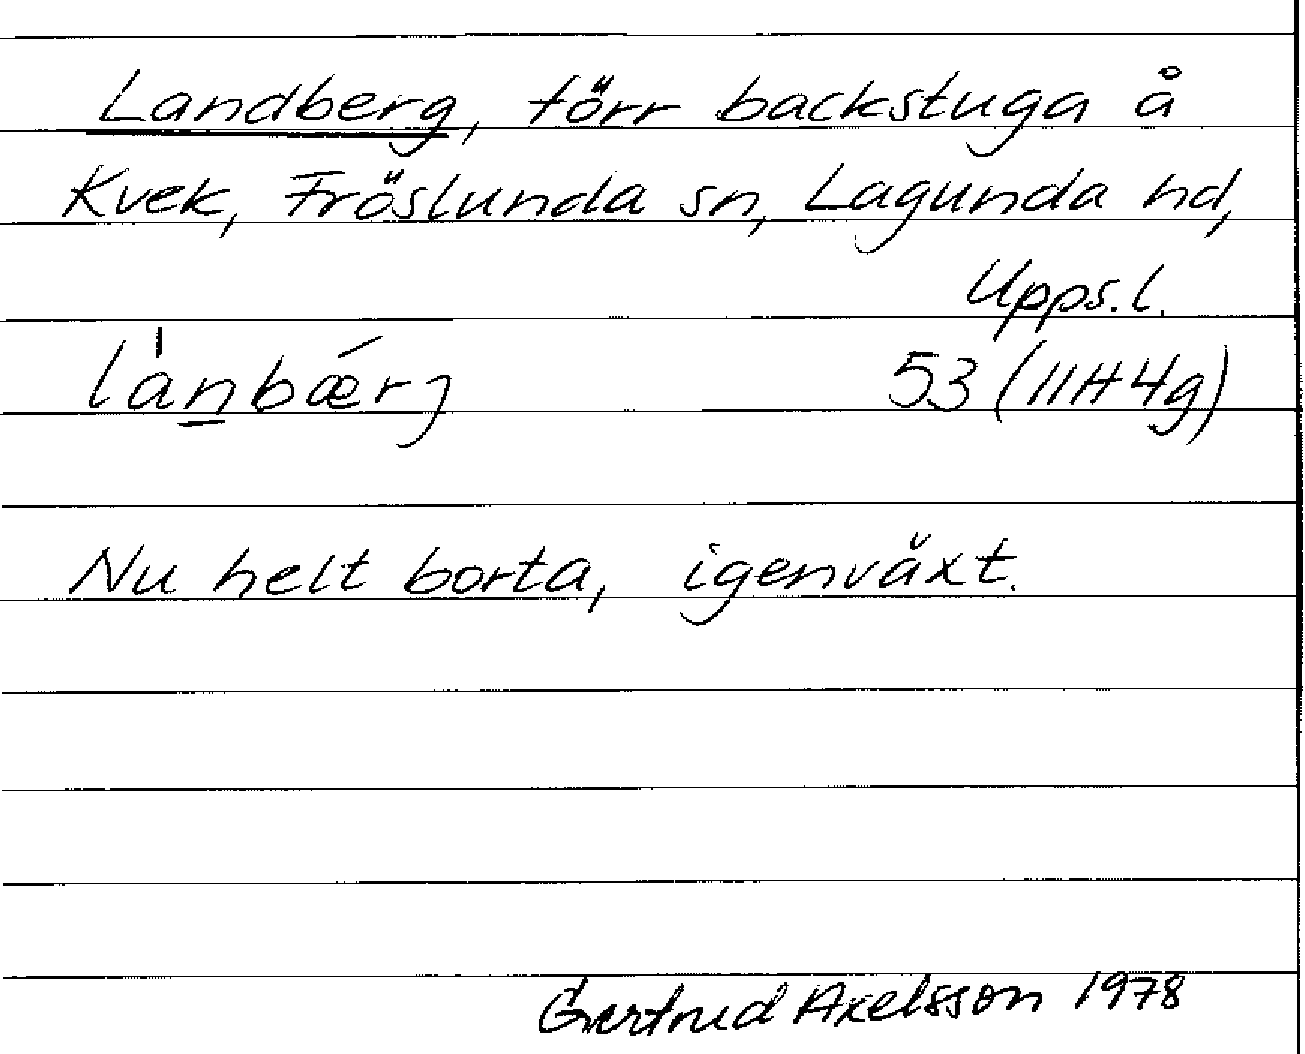 Landberg, förr backstuga å
Kvek, Fröslunda sn, Lagunda hd,
Upps.l.
la̍n̲bǽrj 53 (11H4g)
Nu helt borta, igenväxt.
Gertrud Axelsson 1978